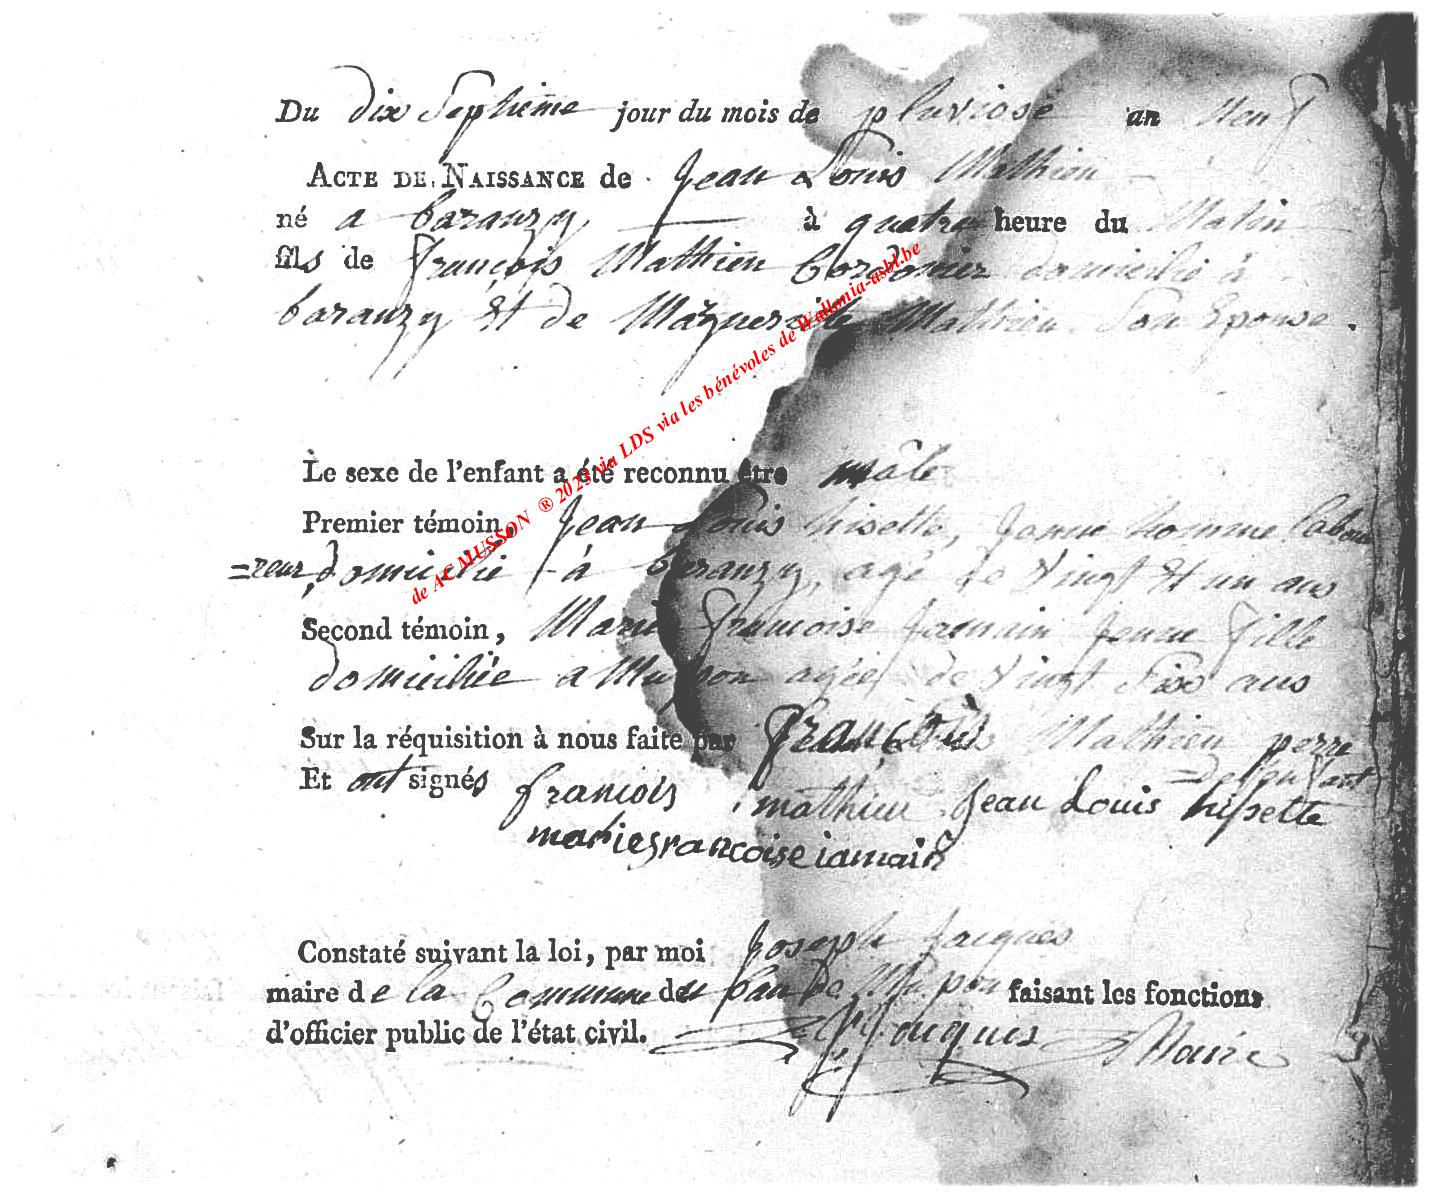 Du dix Septieme jour du mois de pluviose an Neuf
ACTE DE NAISSANCE de Jean Louis Mathieu
né a baranzy à quatre heure du Matin
fils de françois Mathieu Cordonier domicilié à
baranzy Et de Marguerite Mathieu Son Epouse.
Le sexe de l'enfant a été reconnu être mâle
Premier témoin, Jean Louis hisette, Jeune homme labou
=reur, domicilié à baranzy, agé de Vingt Et un ans
Second témoin, Marie françoise Jamain Jeune fille
domiciliée a Musson agée de Vingt Six ans
Sur la réquisition à nous faite par françois Mathieu perre
=de l'enfant
Et ont signés francois mathieu Jean Louis hisette
marie francoise iamain
Constaté suivant la loi, par moi Joseph Jacques
maire de la Commune du ban de Musson faisant les fonctions
d'officier public de l'état civil. Jacques Maire
de AC MUSSON ® 2023 via LDS via les bénévoles de Wallonia-asbl.be